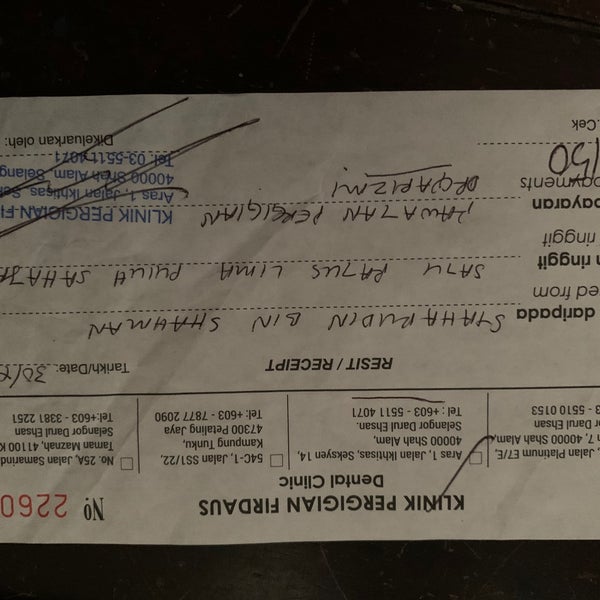 KLINIK PERGIGIAN FIRDAUS
Dental Clinic
No 2260
Jalan Platinum E7/E,
7, 40000 Shah Alam,
or Darul Ehsan
3 - 5510 0153
Aras 1, Jalan Ikhtisas, Seksyen 14,
40000 Shah Alam,
Selangor Darul Ehsan.
Tel : +603 - 5511 4071
54C-1, Jalan SS1/22,
Kampung Tunku,
47300 Petaling Jaya
Tel:+603 - 7877 2090
No. 25A, Jalan Samarind
Taman Maznah, 41100 K
Selangor Darul Ehsan
Tel:+603 - 3381 2251
RESIT / RECEIPT
Tarikh/Date: 30/
daripada SYAHARUDIN BIN SHAHMAN
ed from
ringgit SATU RATUS LIMA PULUH SAHAJA
ringgit
bayaran RAWATAN PERGIGIAN
payments DR QARIZMI
150
Cek
KLINIK PERGIGIAN FI
Aras 1, Jalan Ikhtisas, Sek
40000 Shah Alam, Selang
Tel: 03-5511 4071
Dikeluarkan oleh: